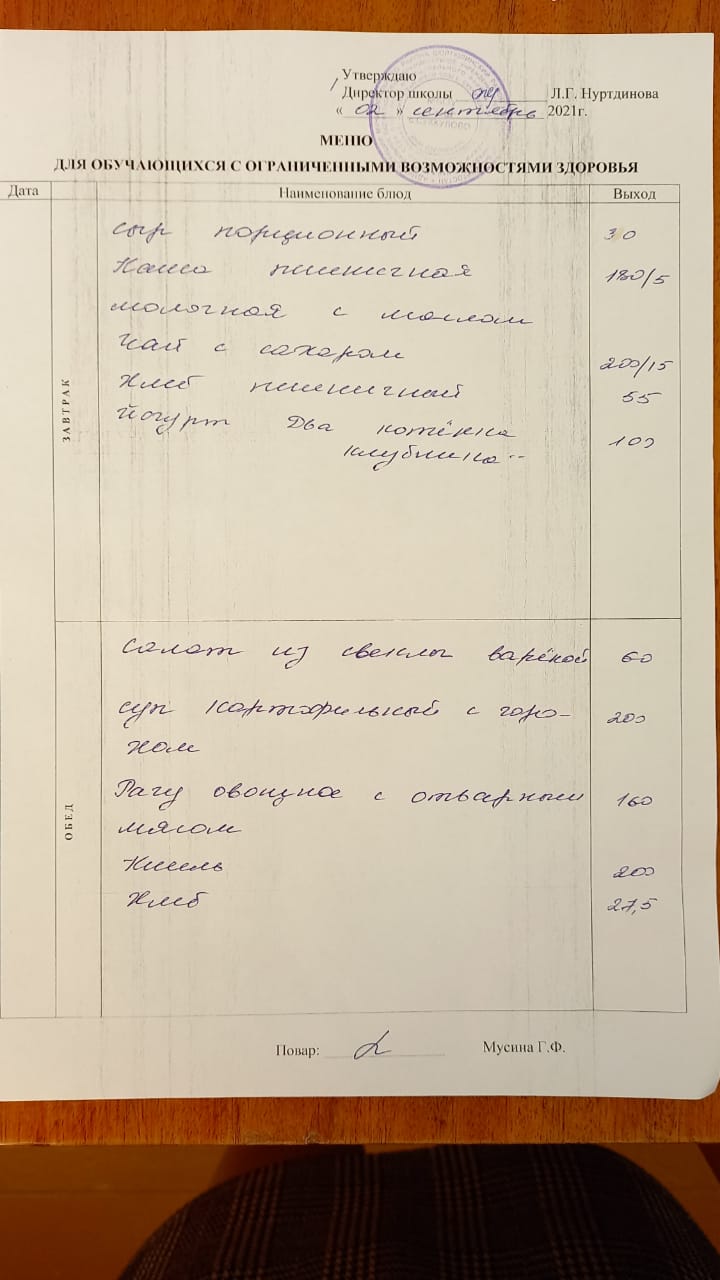 Утверждаю
Директор школы Л.Г. Нуртдинова
« 02 » сентябрь 2021г.
МЕНЮ
ДЛЯ ОБУЧАЮЩИХСЯ С ОГРАНИЧЕННЫМИ ВОЗМОЖНОСТЯМИ ЗДОРОВЬЯ
Дата Наименование блюд Выход
ЗАВТРАК
сыр порционный 30
Каша пшеничная 180/5
молочная с маслом
Чай с сахаром 200/15
Хлеб пшеничный 55
Йогурт Два котёнка 100
клубника
ОБЕД
Салат из свеклы варёной 60
суп картофельный с горо- 200
хом
Рагу овощное с отварным 160
мясом
Кисель 200
Хлеб 27,5
Повар: Мусина Г.Ф.